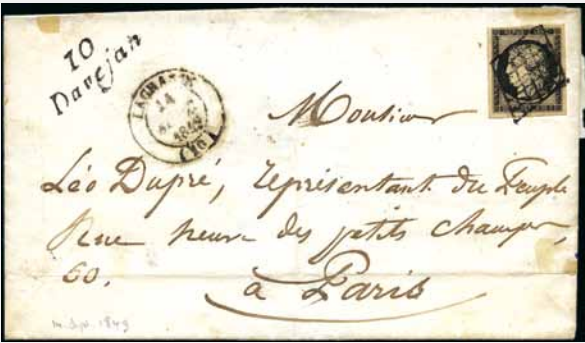 10
Davejan
LAGRASSE
14
1849
(10)
Monsieur
Léo Dupré, représentant du Peuple
Rue neuve des petits champs,
60.
à Paris
1849